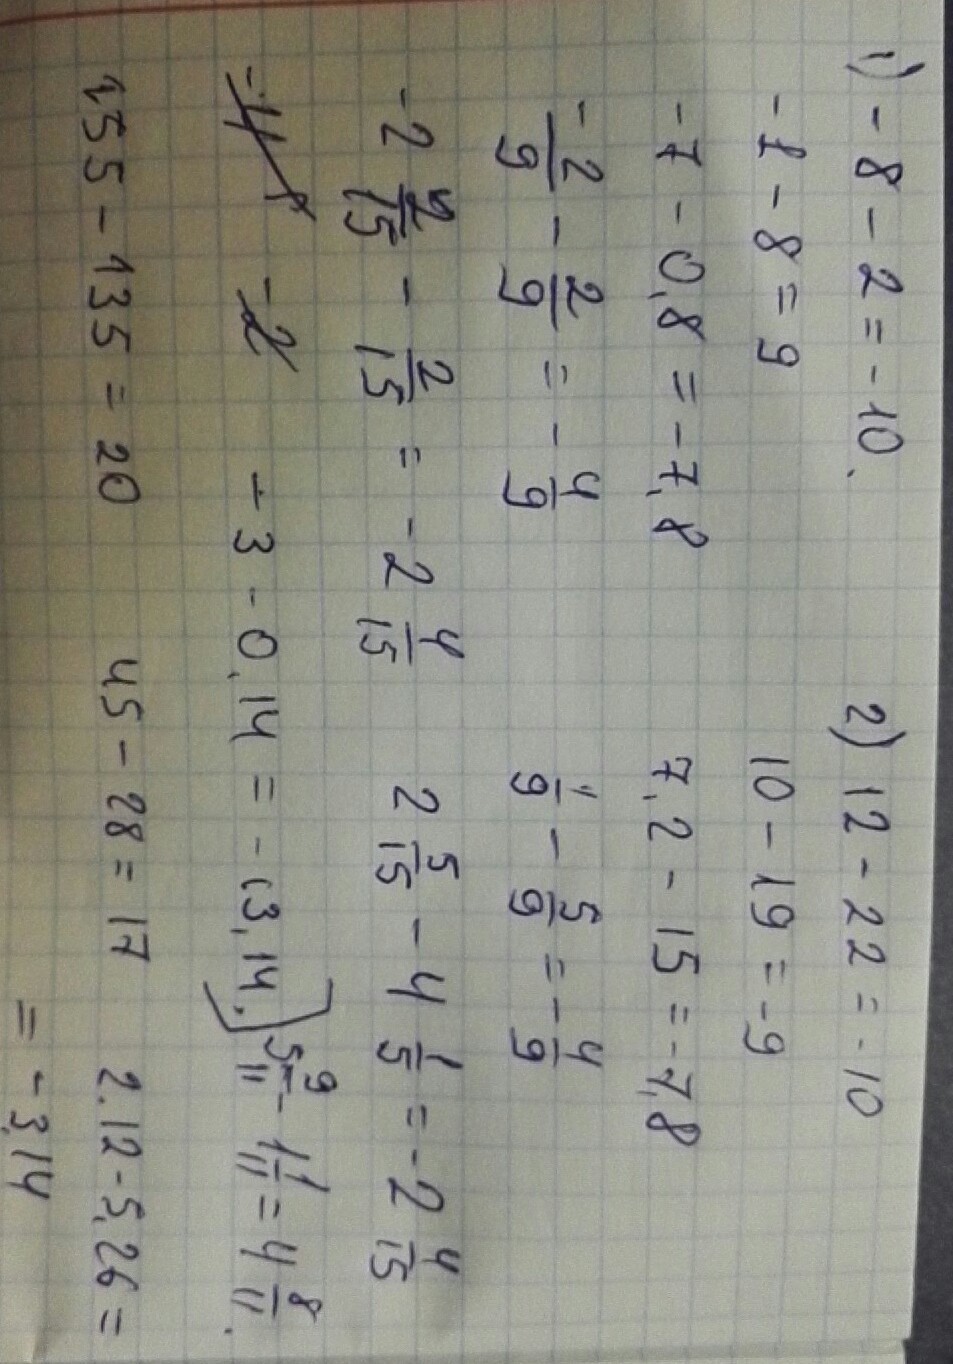 1) -8 - 2 = -10. 2) 12 - 22 = -10
-1 - 8 = 9 10 - 19 = -9
-7 - 0,8 = -7,8 7,2 - 15 = -7,8
-2/9 - 2/9 = -4/9 1/9 - 5/9 = -4/9
-2 2/15 - 2/15 = -2 4/15 2 5/15 - 4 1/5 = -2 4/15
-3 - 0,14 = -(3,14.) 5 9/11 - 1 1/11 = 4 8/11.
155 - 135 = 20 45 - 28 = 17 2.12 - 5,26 =
= -3,14